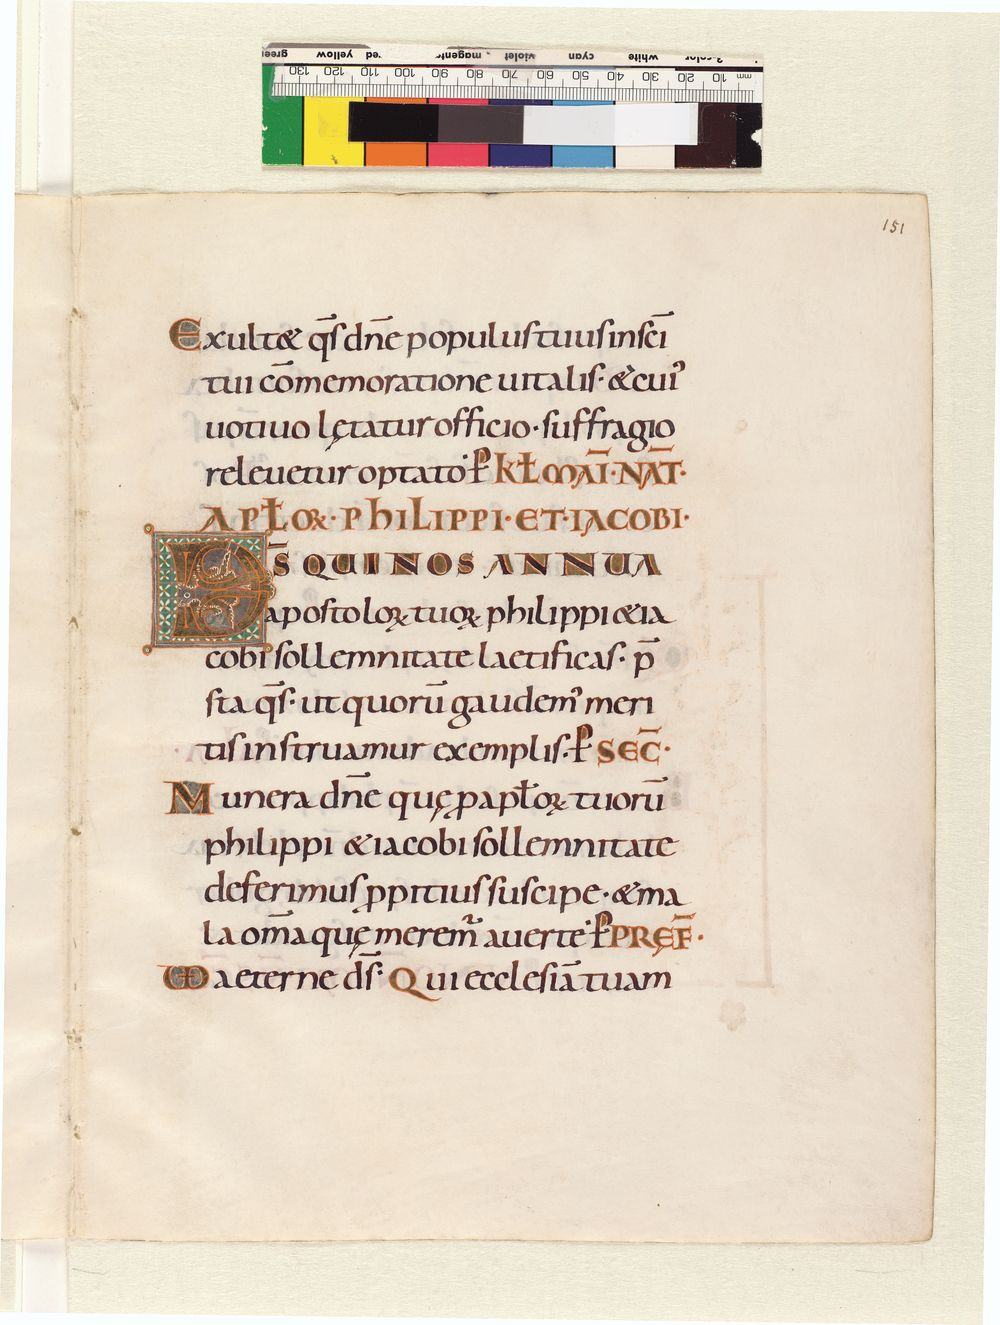 green yellow red magenta violet cyan white 3-color
130 120 110 100 90 80 70 60 50 40 30 20 10 mm
151
Exult& q̄s dn̄e populus tuus in sc̄i
tui cōmemoratione uitalis· &cui᾽
uotiuo lętatur officio· suffragio
releuetur optato· ꝑ KŁ MAĪ·NAT̄·
APŁOꝜ·PhILIPPI·ET·IACOBI·
DS̄ QUI NOS ANNUA
apostoloꝝ tuoꝝ philippi &ia
cobi sollemnitate laetificas· p̄
sta q̄s· ut quorū gaudem᾽ meri
tis instruamur exemplis· ꝑ SEC̄·
Munera dn̄e quę ꝓ apƚoꝝ tuorū
philippi &iacobi sollemnitate
deferimus ꝓpitius suscipe· &ma
la om̄a quę merem̄ auerte· ꝑ PRĘF̄·
VD aeterne ds̄· Qui ecclesiā tuam